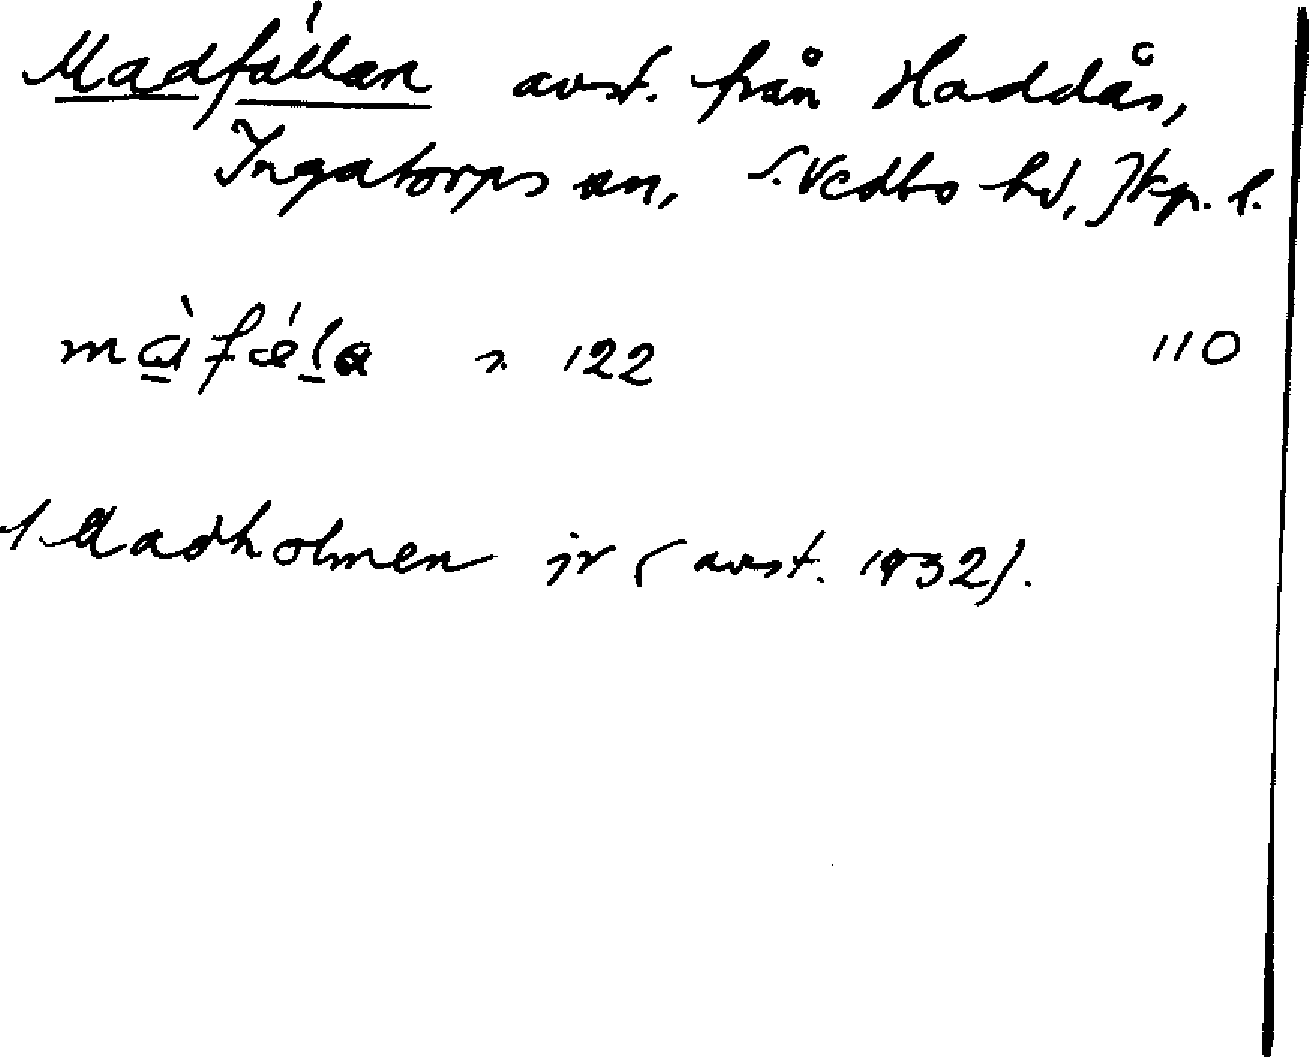 Madfállan avst. från Haddås,
Ingatorps sn, S. Vedbo hd, Jkp. l.
màfǽla n. 122 110
Madholmen jr (avst. 1932).